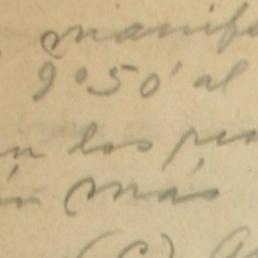 manif
9°50' al
n los pe
ún más
(C)